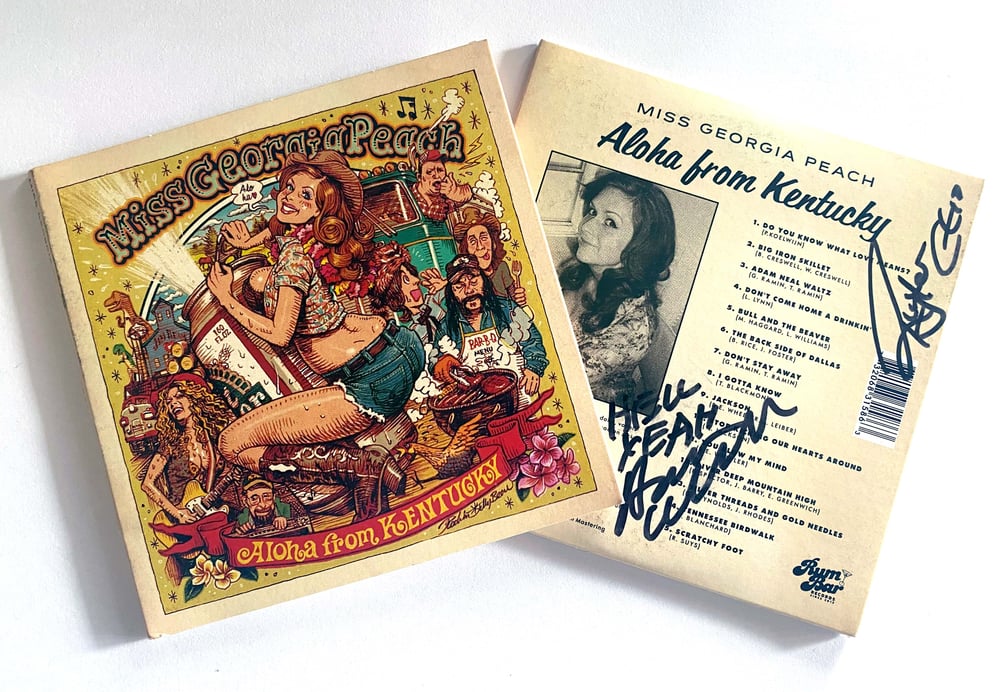 Miss Georgia Peach
Alo ha!!
160 FL OZ
BAR-B-Q
MENU
Aloha from KENTUCKY
MISS GEORGIA PEACH
Aloha from Kentucky
1. DO YOU KNOW WHAT LOVE MEANS?
(P.KOELWIJN)
2. BIG IRON SKILLET
(B. CRESWELL, W. CRESWELL)
3. ADAM NEAL WALTZ
(G. RAMIN, T. RAMIN)
4. DON'T COME HOME A DRINKIN'
(L. LYNN)
5. BULL AND THE BEAVER
(M. HAGGARD, L. WILLIAMS)
6. THE BACK SIDE OF DALLAS
(B. RICE, J. FOSTER)
7. DON'T STAY AWAY
(G. RAMIN, T. RAMIN)
8. I GOTTA KNOW
(T. BLACKMON)
9. JACKSON
LEIBER)
OUR HEARTS AROUND
MY MIND
DEEP MOUNTAIN HIGH
J. BARRY, E. GREENWICH)
THREADS AND GOLD NEEDLES
J. RHODES)
TENNESSEE BIRDWALK
BLANCHARD)
SCRATCHY FOOT
(R. SUYS)
HELL
YEAH
Mastering
Rum Bar
RECORDS